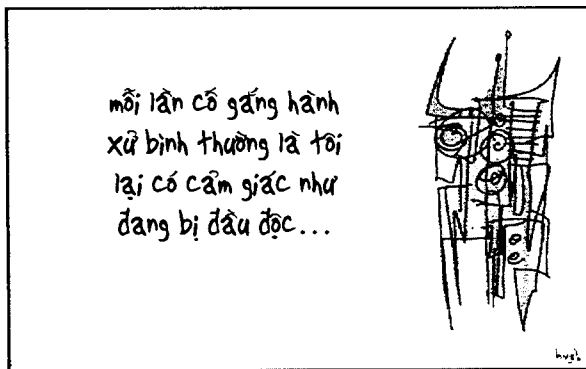 mỗi lần cố gắng hành
xử bình thường là tôi
lại có cảm giác như
đang bị đầu độc...